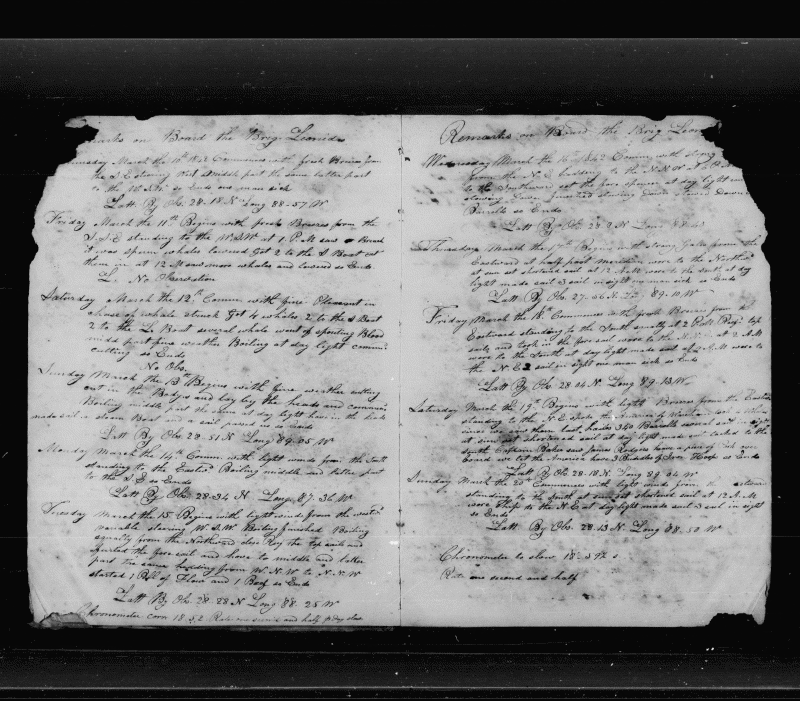 Remarks on Board the Brig Leonidas
March the 10th 1842 Commences with fresh Breezes from
the S E steering middle part the same latter part
to the W.S.W. so Ends one man sick
Latt. By Obs. 28-18 N Long 88-57 W
Friday March the 11th Begins with fresh Breezes from the
S.S.E standing to the W.S.W at 1 P.M saw a Breach
it was sperm whales lowered Got 2 to the S Boat cut
them in at 12 M saw more whales and lowered so Ends
L. No Observation
Saturday March the 12th Comm. with fine Pleasant in
chase of whale struck Got 4 whales 2 to the S Boat
2 to the L. Boat several whale went of spouting Blood
midd part fine weather Boiling at day light commen
cutting so Ends
No Obs.
Sunday March the 13 Begins with fine weather cutting
cut in the Bodys and lay by the heads and commenced
Boiling middle part the same at day light hove in the heads
made sail a Boat and a sail passed us so Ends
Latt By Obs. 28-51 N Long 89-05 W
Monday March the 14th Comm. with light winds from the South
standing to the Eastward Boiling middle and latter part
to the S.E so Ends
Latt By Obs. 28-34 N. Long. 87-36 W
Tuesday March the 15 Begins with light winds from the west
variable stearing W.S.W Boiling finished Boiling
squally from the Northward close Reef the top sails and
furled the fore sail and hove to middle and latter
part the same heading from W.N.W to N.N.W
started 1 Bll of Flour and 1 Beef so Ends
Latt By Obs. 28-28 N Long 88-25 W
Chronometer corr 18.52 Rate one second and half pr day slow
Remarks on Board the Brig Leon
Wednesday March the 16 1842 Comm with strong
from the N.E heading to the N.N.W at
to the Southward set the fore spencer at day light
so Ends
Latt By Obs 28-2 N Long 88-
Thursday March the 17th Begins with strong Gales from the
Eastward at half past Meridian wore to the Northward
at sun set shortend sail at 12 A.M wore to the South at day
light made sail 3 sail in sight one man sick so Ends
Latt By Obs. 27-56 N Long 89-10 W
Friday March the 18 Commences with fresh Breezes from the
Eastward standing to the South squally at 2 P.M Reef top
sails and took in the fore sail wore to the at 2 A.M
wore to the South at day light made sail A.M wore to
the N.E 2 sail in sight one man sick so Ends
Latt By Obs 28 04 N. Long 89-13 W
Saturday March the 19th Begins with light Breezes from the Eastward
standing to the N.E spoke the America of
since we saw them last, hailes 340 Barrells several sail in sight
at sun set shortened sail at day light made sail to the
South Captain Baker saw James Rodgers have a pair of Duck
board we let the America have 3 Bundles of Iron Hoops so Ends
Latt By Obs 28-18 N. Long 89 04 W
Sunday March the 20th Commences with light winds from the eastern
standing to the South at sun set shortened sail at 12 A.M
wore Ship to the N.E at day light made sail 3 sail in sight
so Ends
Latt By Obs. 28-13 N. Long 88-50 W
Chronometer to slow 18-59
Rate one second and half